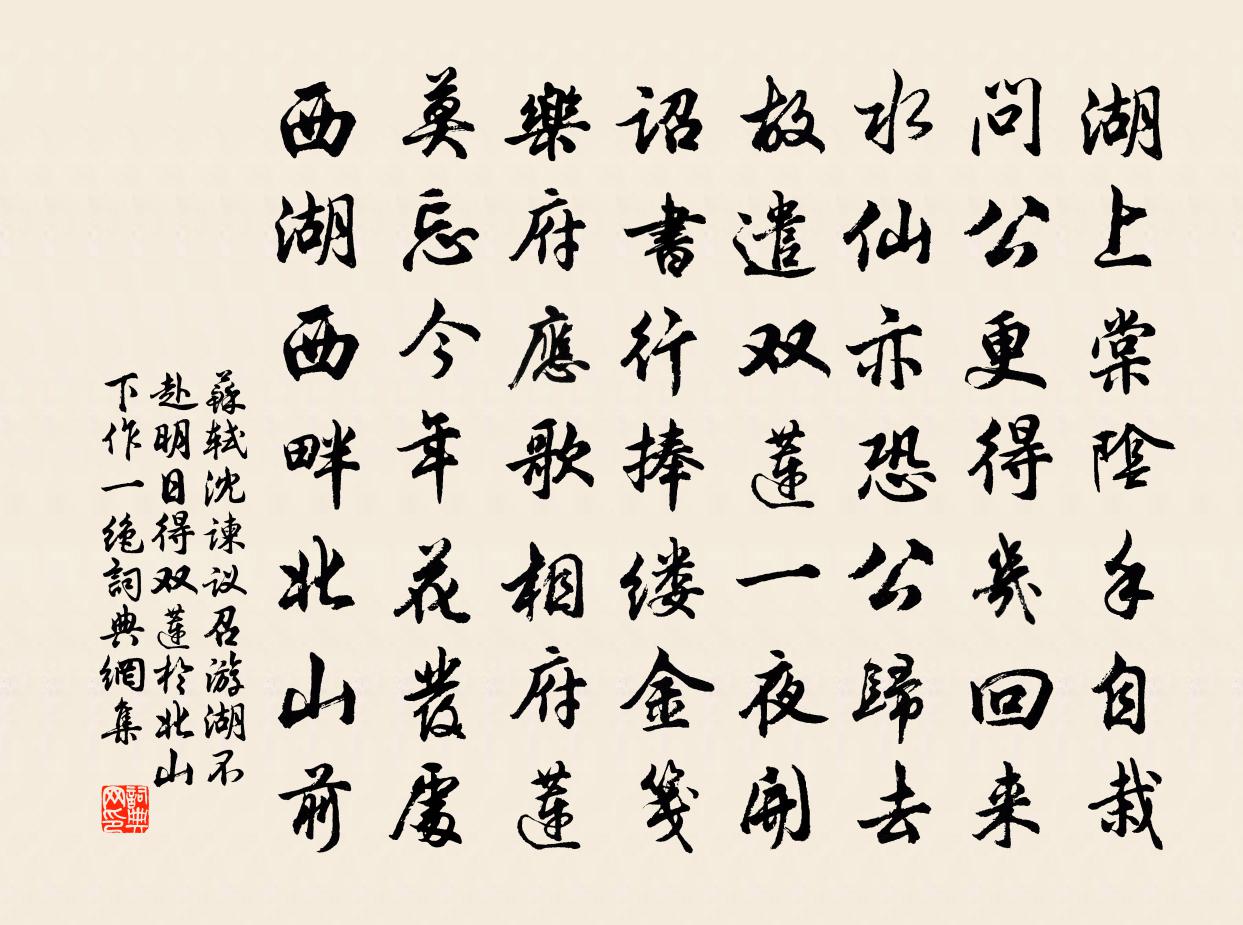 湖上棠陰手自栽
問公更得幾回来
水仙亦恐公歸去
故遣双蓮一夜開
詔書行捧缕金箋
樂府應歌相府蓮
莫忘今年花發處
西湖西畔北山前
蘇軾沈諫议召游湖不
赴明日得双蓮於北山
下作一绝詞典網集
詞典
网印